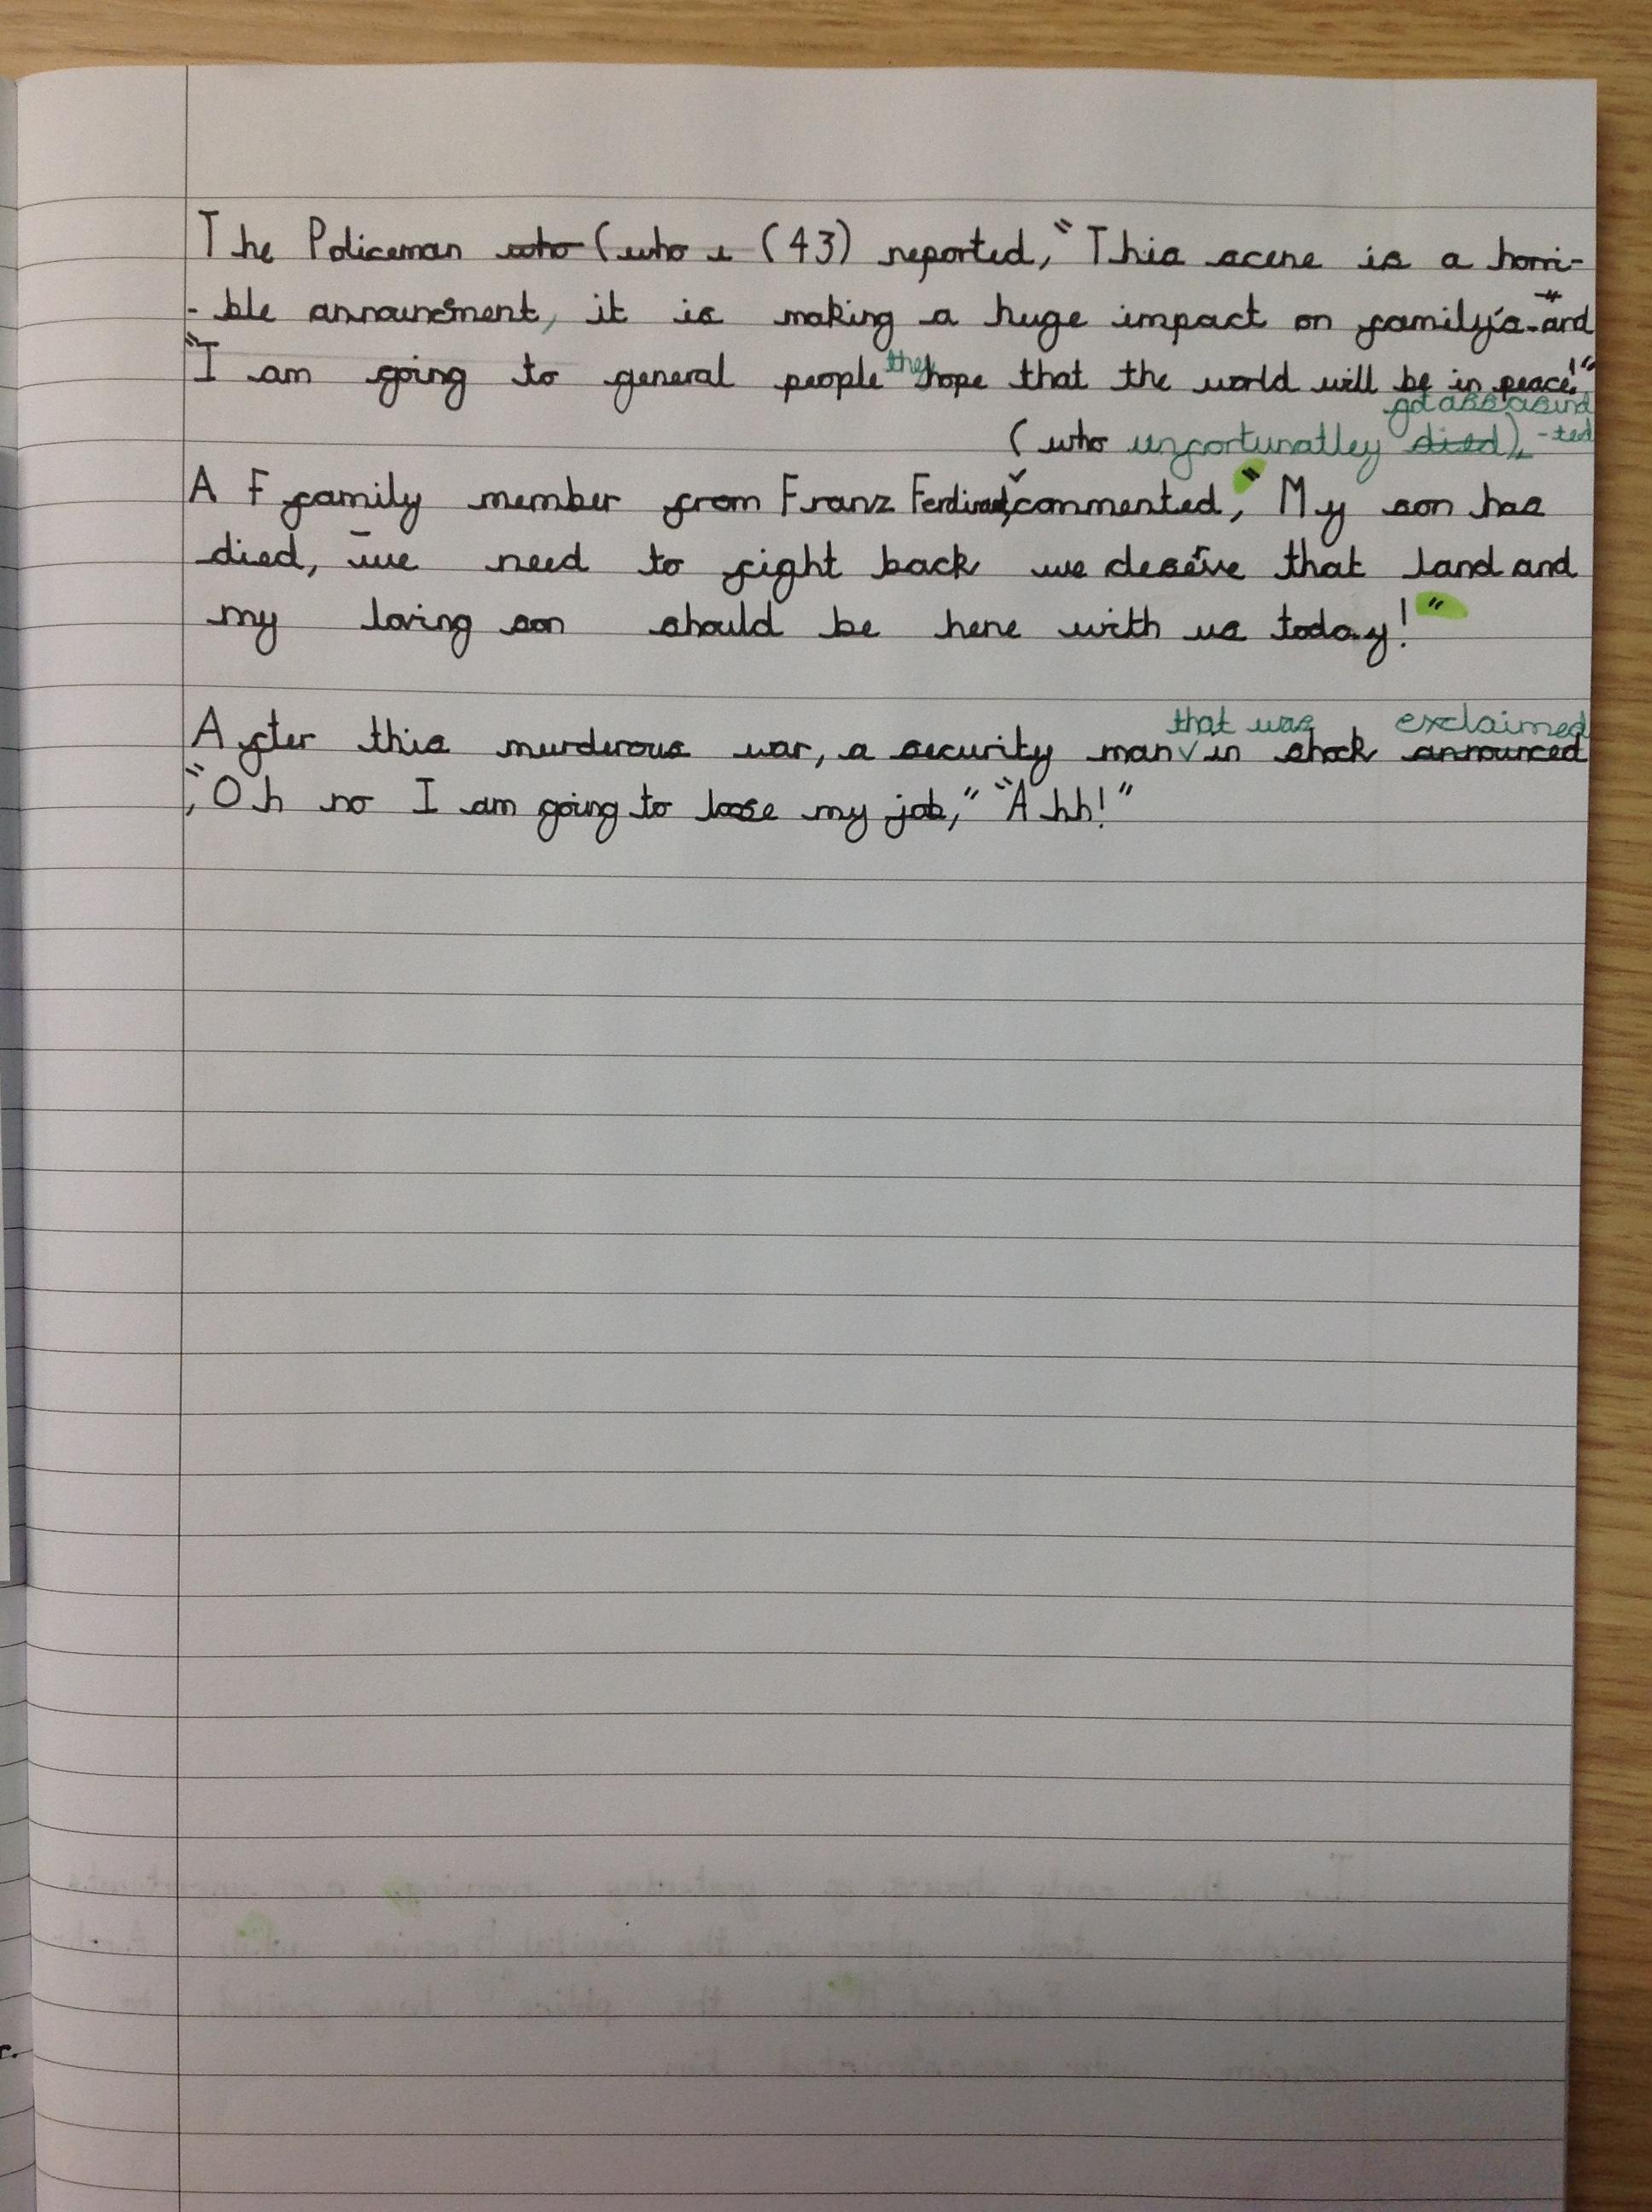 The Policeman who (who i (43) reported, "This scene is a horri-
-ble announcment, it is making a huge impact on family's and
"I am going to general people they hope that the world will be in peace!"
got assasind
(who unfortunatley died), -ted
A F family member from Franz Ferdinand, commented, "My son has
died, we need to fight back we deserve that land and
my loving son should be here with us today!"
that was exclaimed
After this murderous war, a security man in shock announced
,"Oh no I am going to loose my job," "Ahh!"